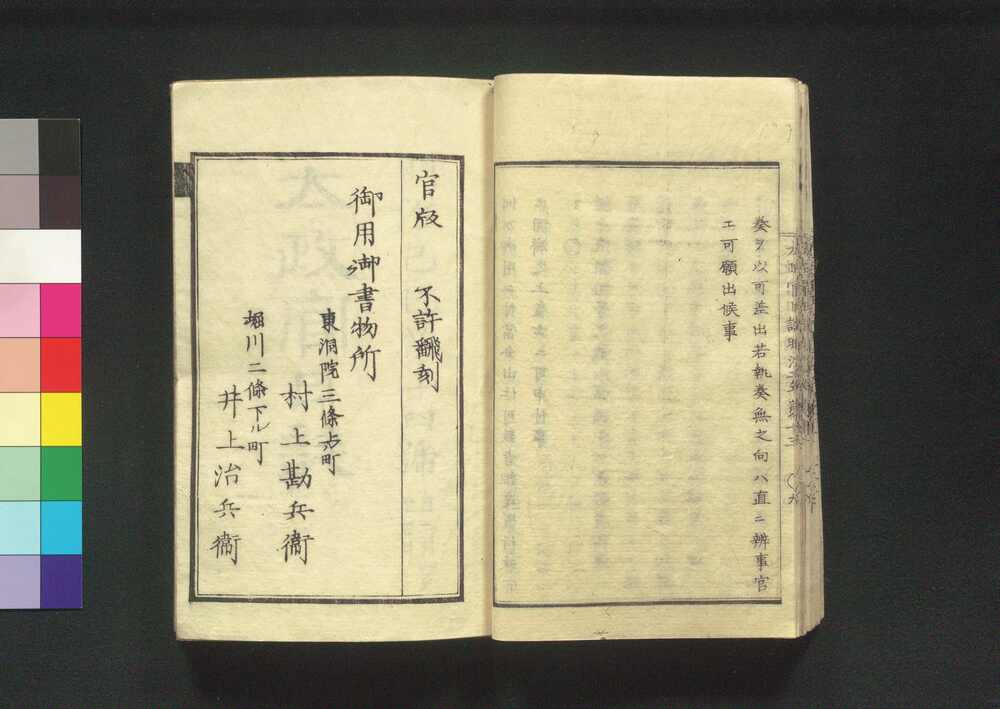 奏ヲ以可差出若執奏無之向ハ直ニ辨事官
エ可願出候事
官版 不許翻刻
御用御書物所
東洞院三條上ル町
村上勘兵衞
堀川二條下ル町
井上治兵衞